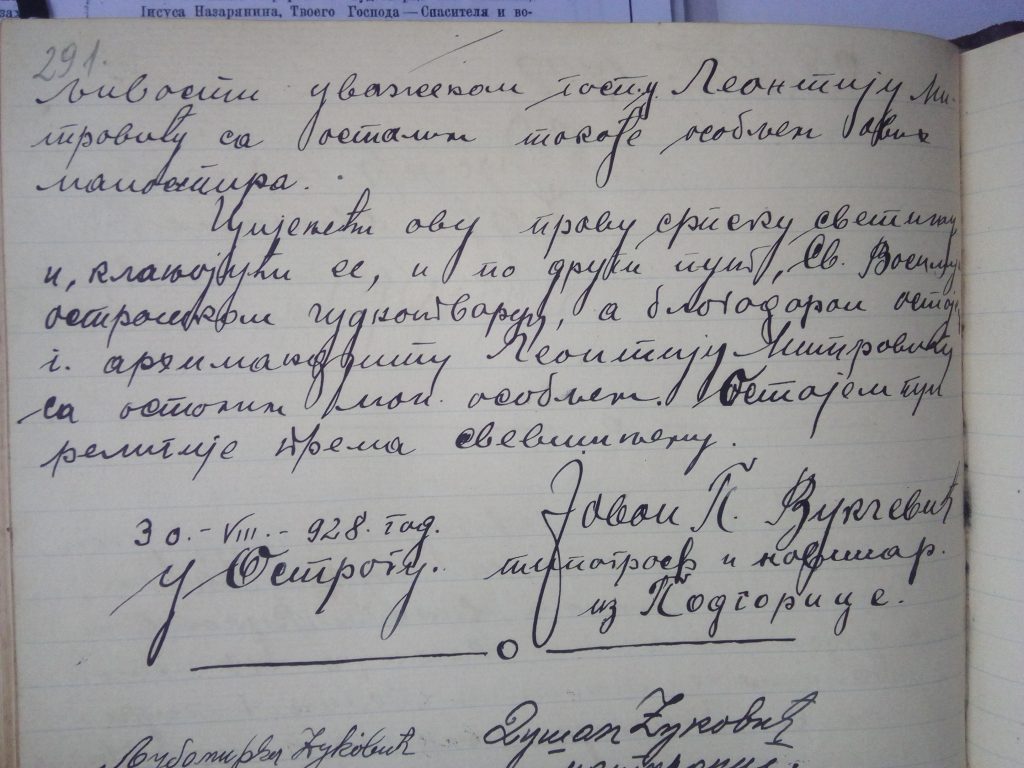 Іисуса Назарянина, Твоего Господа — Спасителя и во-
291.
љивости уваженом госпу. Леонтију Ми-
тровићу са осталим такође особљем ових
манастира.
Цијенећи ову праву српску светињу
и, клањајући се, и по други пут, Св. Василију
острошком чудотворцу, а благодаран остају
г. архимандриту Леонтију Митровићу
са осталим ман. особљем. Остајем пун
религије према свевишњему.
30.-VIII.-928. год. Јован П. Вукчевић
у Острогу. типограф и новинар.
из Подгорице.
Душан Вуковић